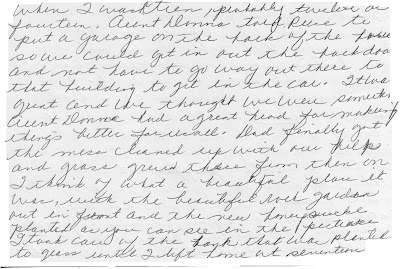 when I was then, probably twelve or
fourteen. Aunt Donna told Reese to
put a garage on the back of the house
so we could get in out the back door
and not have to go way out there to
that building to get in the car. It was
great and we thought we were
Aunt Donna had a great head for making
things better for us all. Dad finally got
the mess cleaned up with our help
and grass grew there from then on
I think of what a beautiful place it
was, with the beautiful garden
out in front and the new honeysuckle
planted as you can see in the picture
I took care of the bank that was planted
to grass until I left home at seventeen